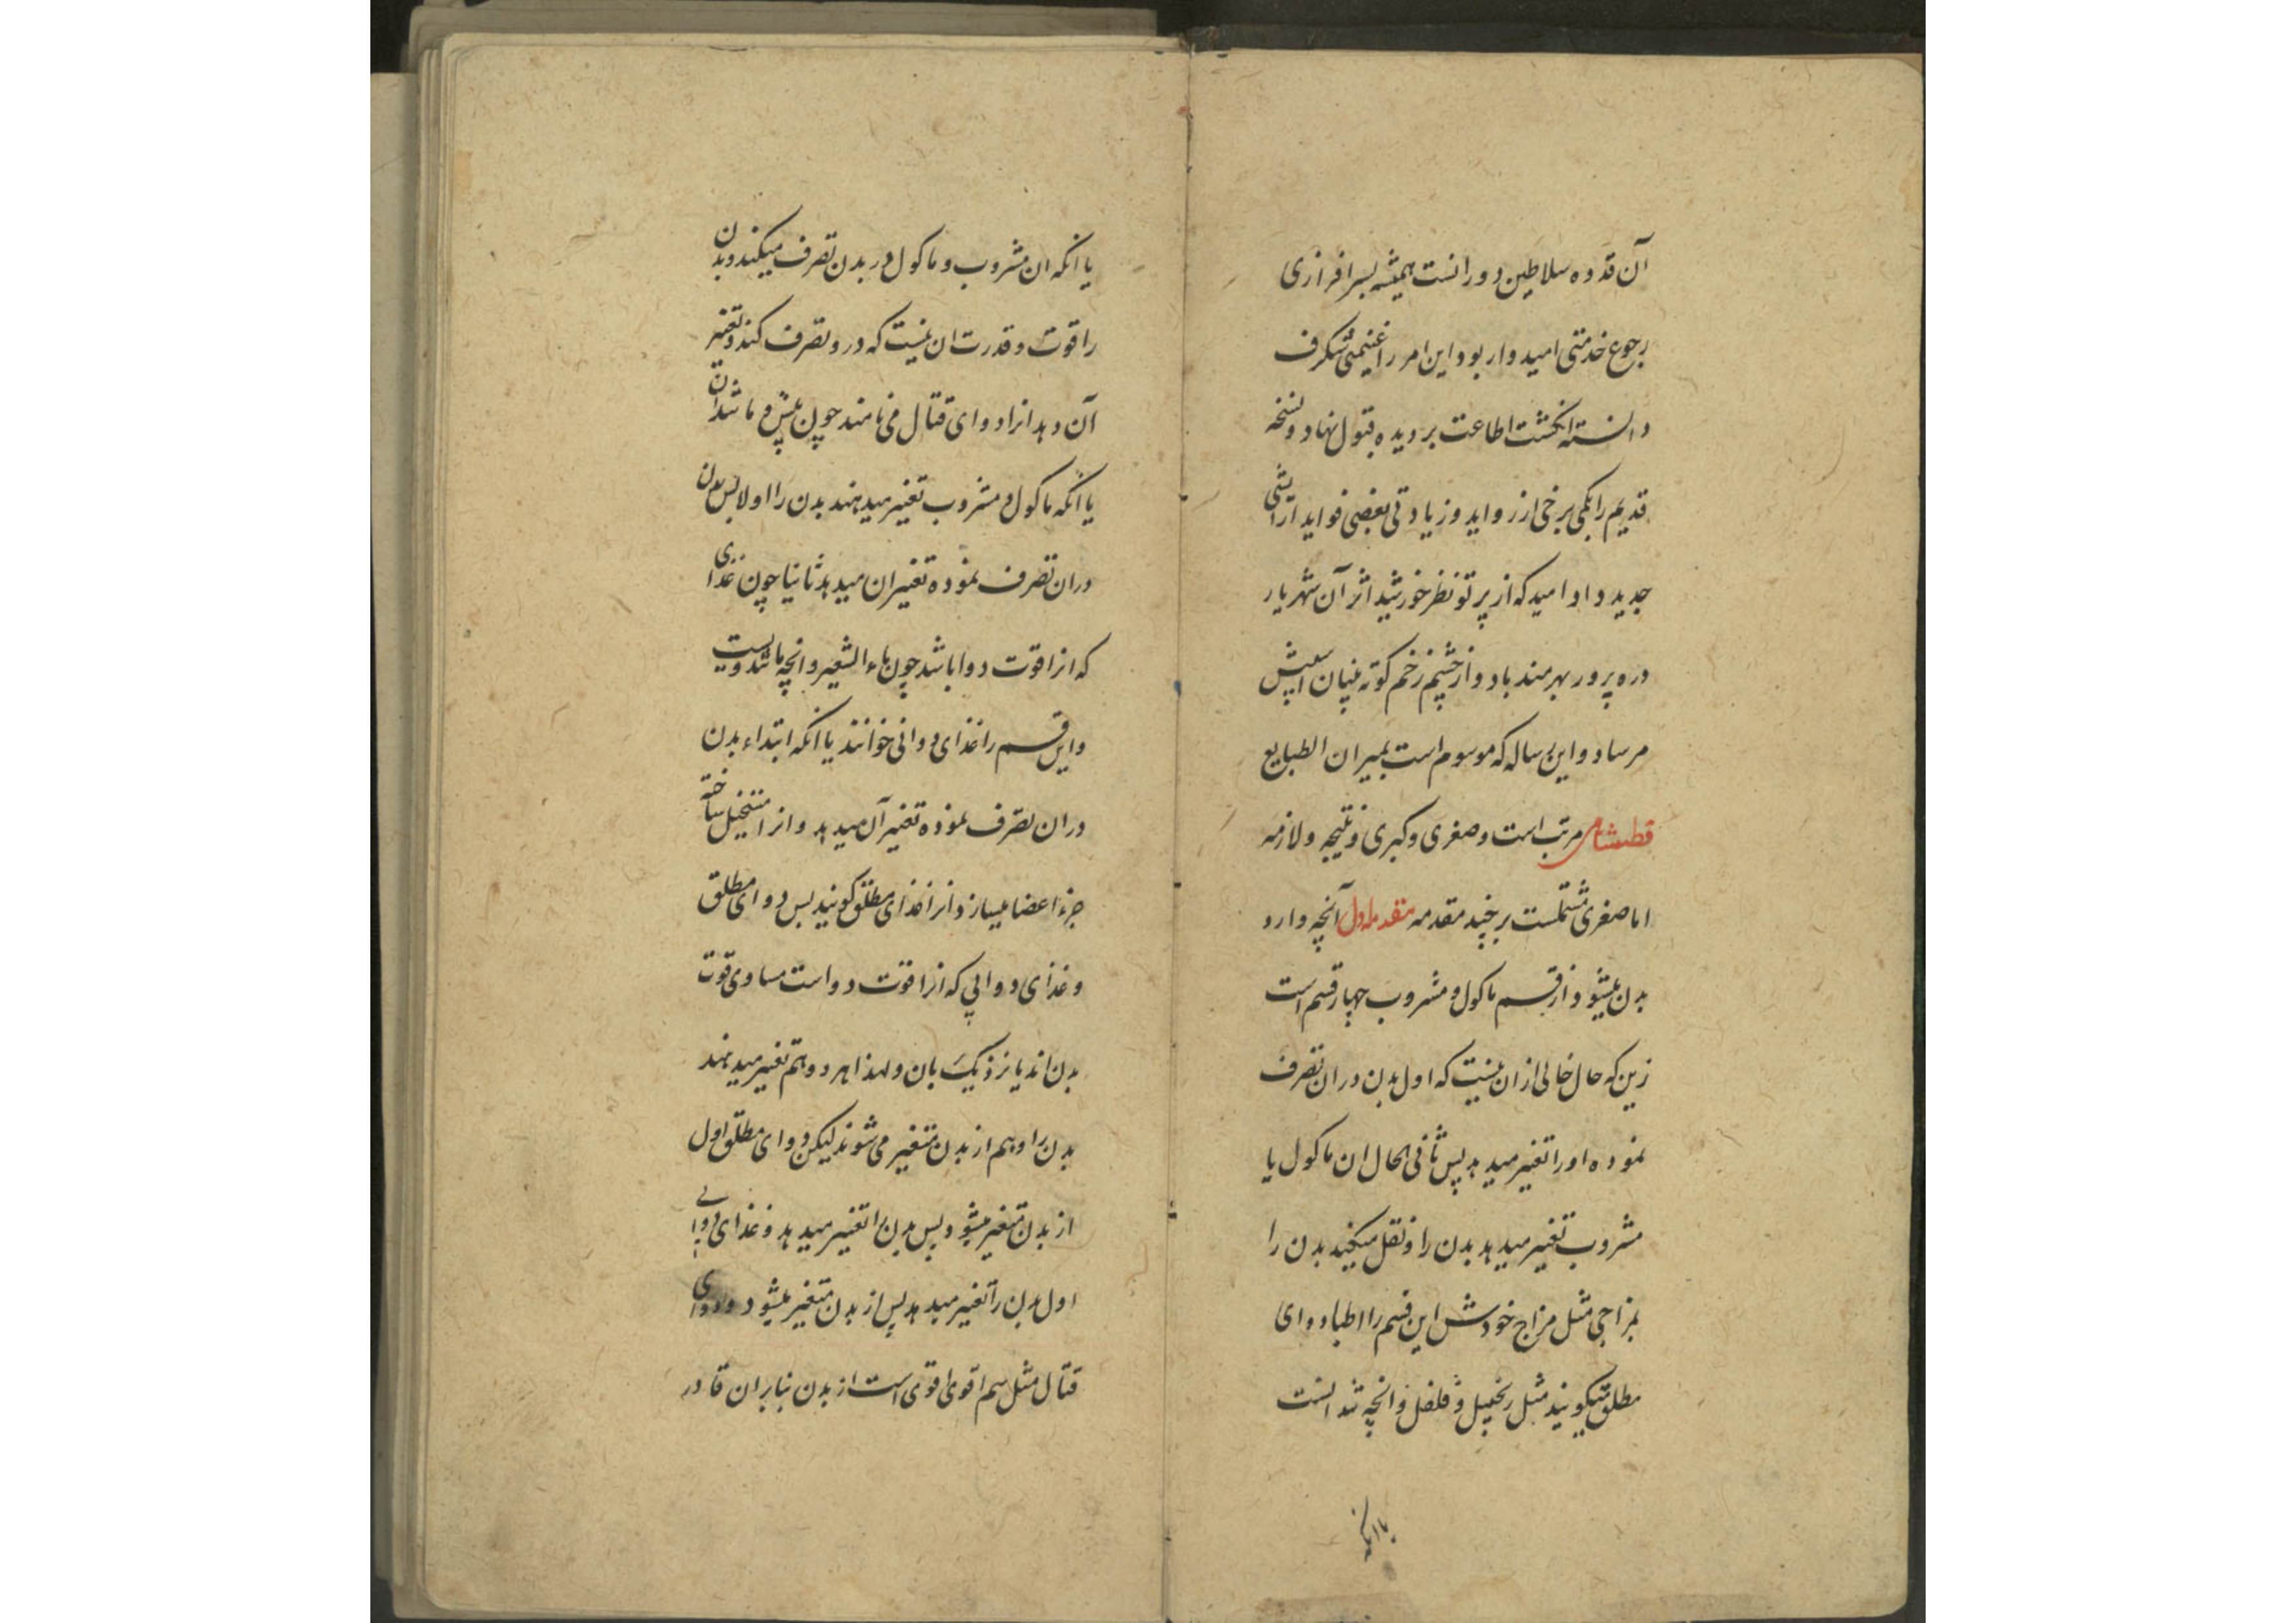 آن قدوه سلاطین دورانست همیشه بسرافرازی
رجوع خدمتی امیدوار بود و این امر را غنیمتی شگرف
دانسته انگشت اطاعت بر دیده قبول نهاد و نسخه
قدیم را بکمی برخی از زواید و زیادتی بعضی فواید آرایشی
جدید داد امید که از پرتو نظر خورشید اثر آن شهریار
دره پرور بهرمند باد و از چشم زخم کوته بینان آسیبش
مرساد و این رساله که موسوم است بمیزان الطبایع
قطبشاهی مرتب است و صغری و کبری و نتیجه و لازمه
اما صغری مشتملست بر چند مقدمه مقدمه اول آنچه وارد
بدن میشود از قسم ماکول و مشروب چهار قسم است
زین که حال خالی از ان نیست که اول بدن در ان تصرف
نموده او را تغییر میدهد پس ثانی الحال ان ماکول یا
مشروب تغییر میدهد بدن را و نقل میکند بدن را
بمزاجی مثل مزاج خودش این قسم را اطبا دوای
مطلق میگویند مثل زنجبیل و فلفل و انچه مانند انست
یا انکه
یا انکه ان مشروب و ماکول در بدن تصرف میکند و بدن
را قوت و قدرت ان نیست که در و تصرف کند و تغییر
آن دهد انرا دوای قتال می نامند چون بیش و مانند ان
یا انکه ماکول و مشروب تغییر میدهند بدن را اولا پس بدن
در ان تصرف نموده تغییر ان میدهد ثانیا چون غذای
که انرا قوت دوا باشد چون ماء الشعیر و انچه مانند ویست
و این قسم را غذای دوائی خوانند یا انکه ابتداء بدن
در ان تصرف نموده تغییر آن میدهد و انرا مستحیل ساخته
جزء اعضا میسازد انرا غذای مطلق گویند پس دوای مطلق
و غذای دوایی که انرا قوت دواست مساوی قوت
بدن اند یا نزدیک بان و لهذا هر دو هم تغییر میدهند
بدن را و هم از بدن متغیر می شوند لیکن دوای مطلق اول
از بدن متغیر میشود پس بدن را تغییر میدهد و غذای دوایی
اول بدن را تغییر میدهد پس از بدن متغیر میشود و دوای
قتال مثل سم اقوی قوی است از بدن بنابران قادر